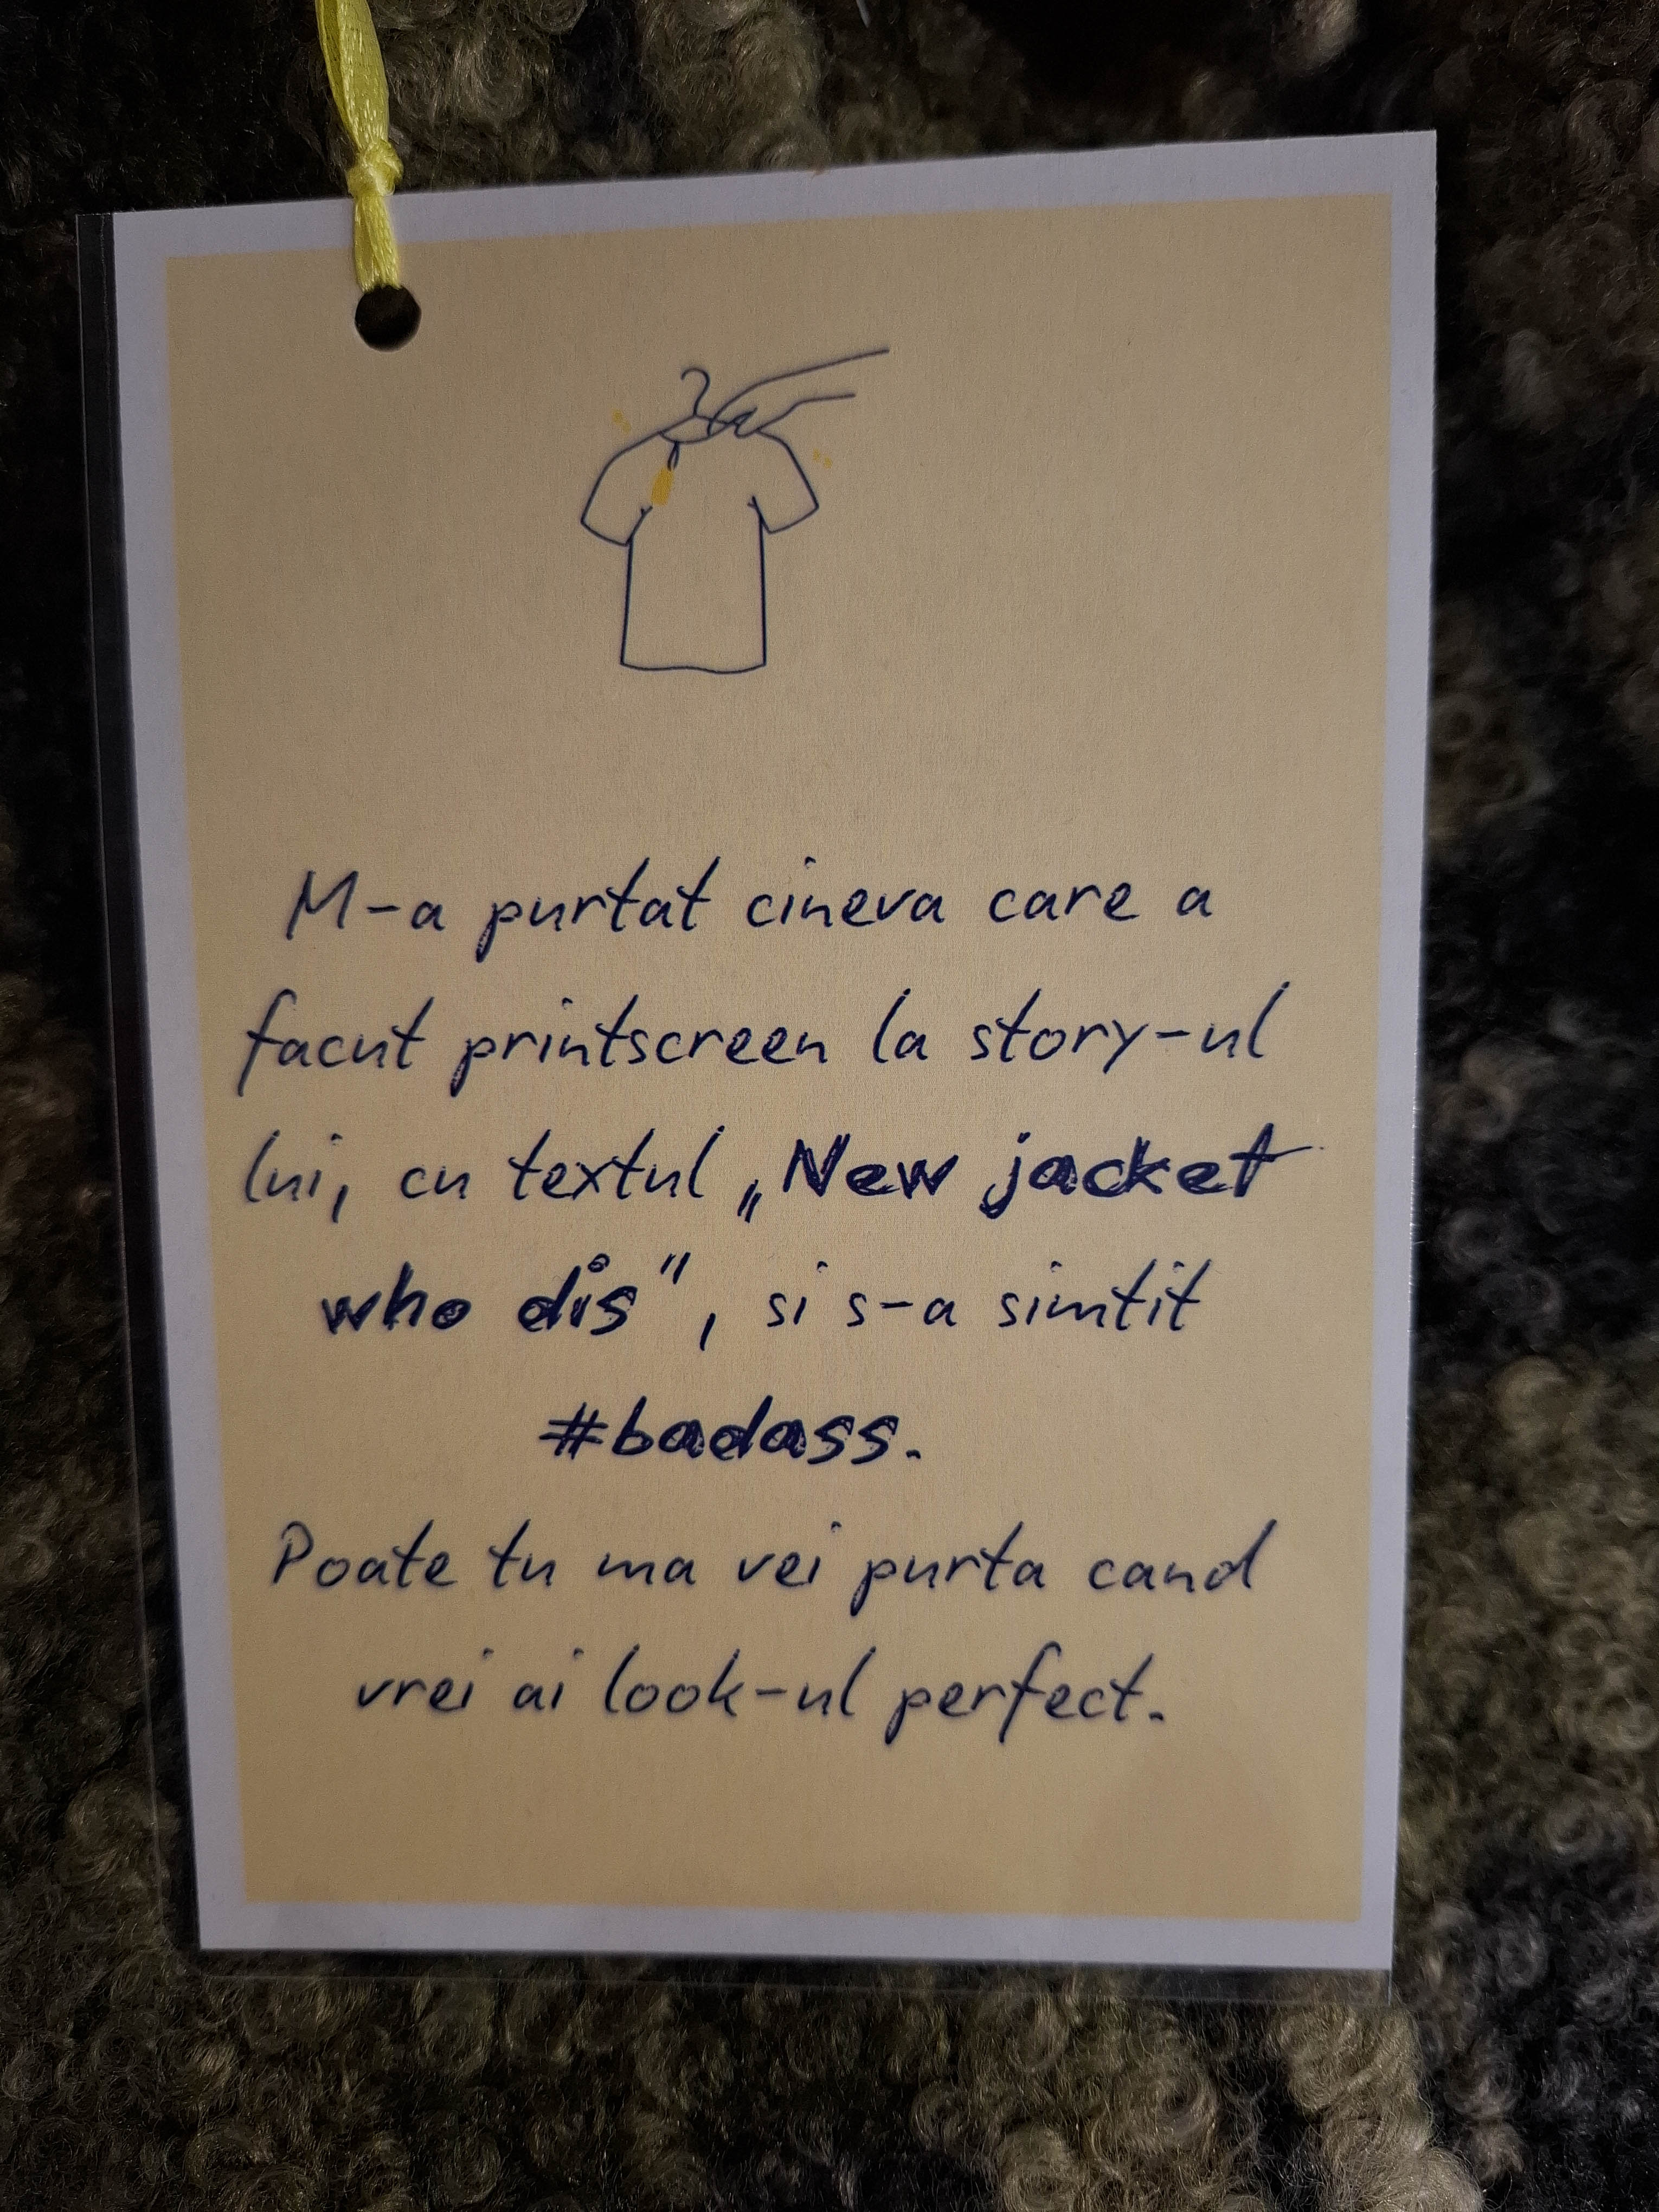 M-a purtat cineva care a
facut printscreen la story-ul
lui, cu textul „New jacket
who dis", si s-a simtit
#badass.
Poate tu ma vei purta cand
vrei ai look-ul perfect.